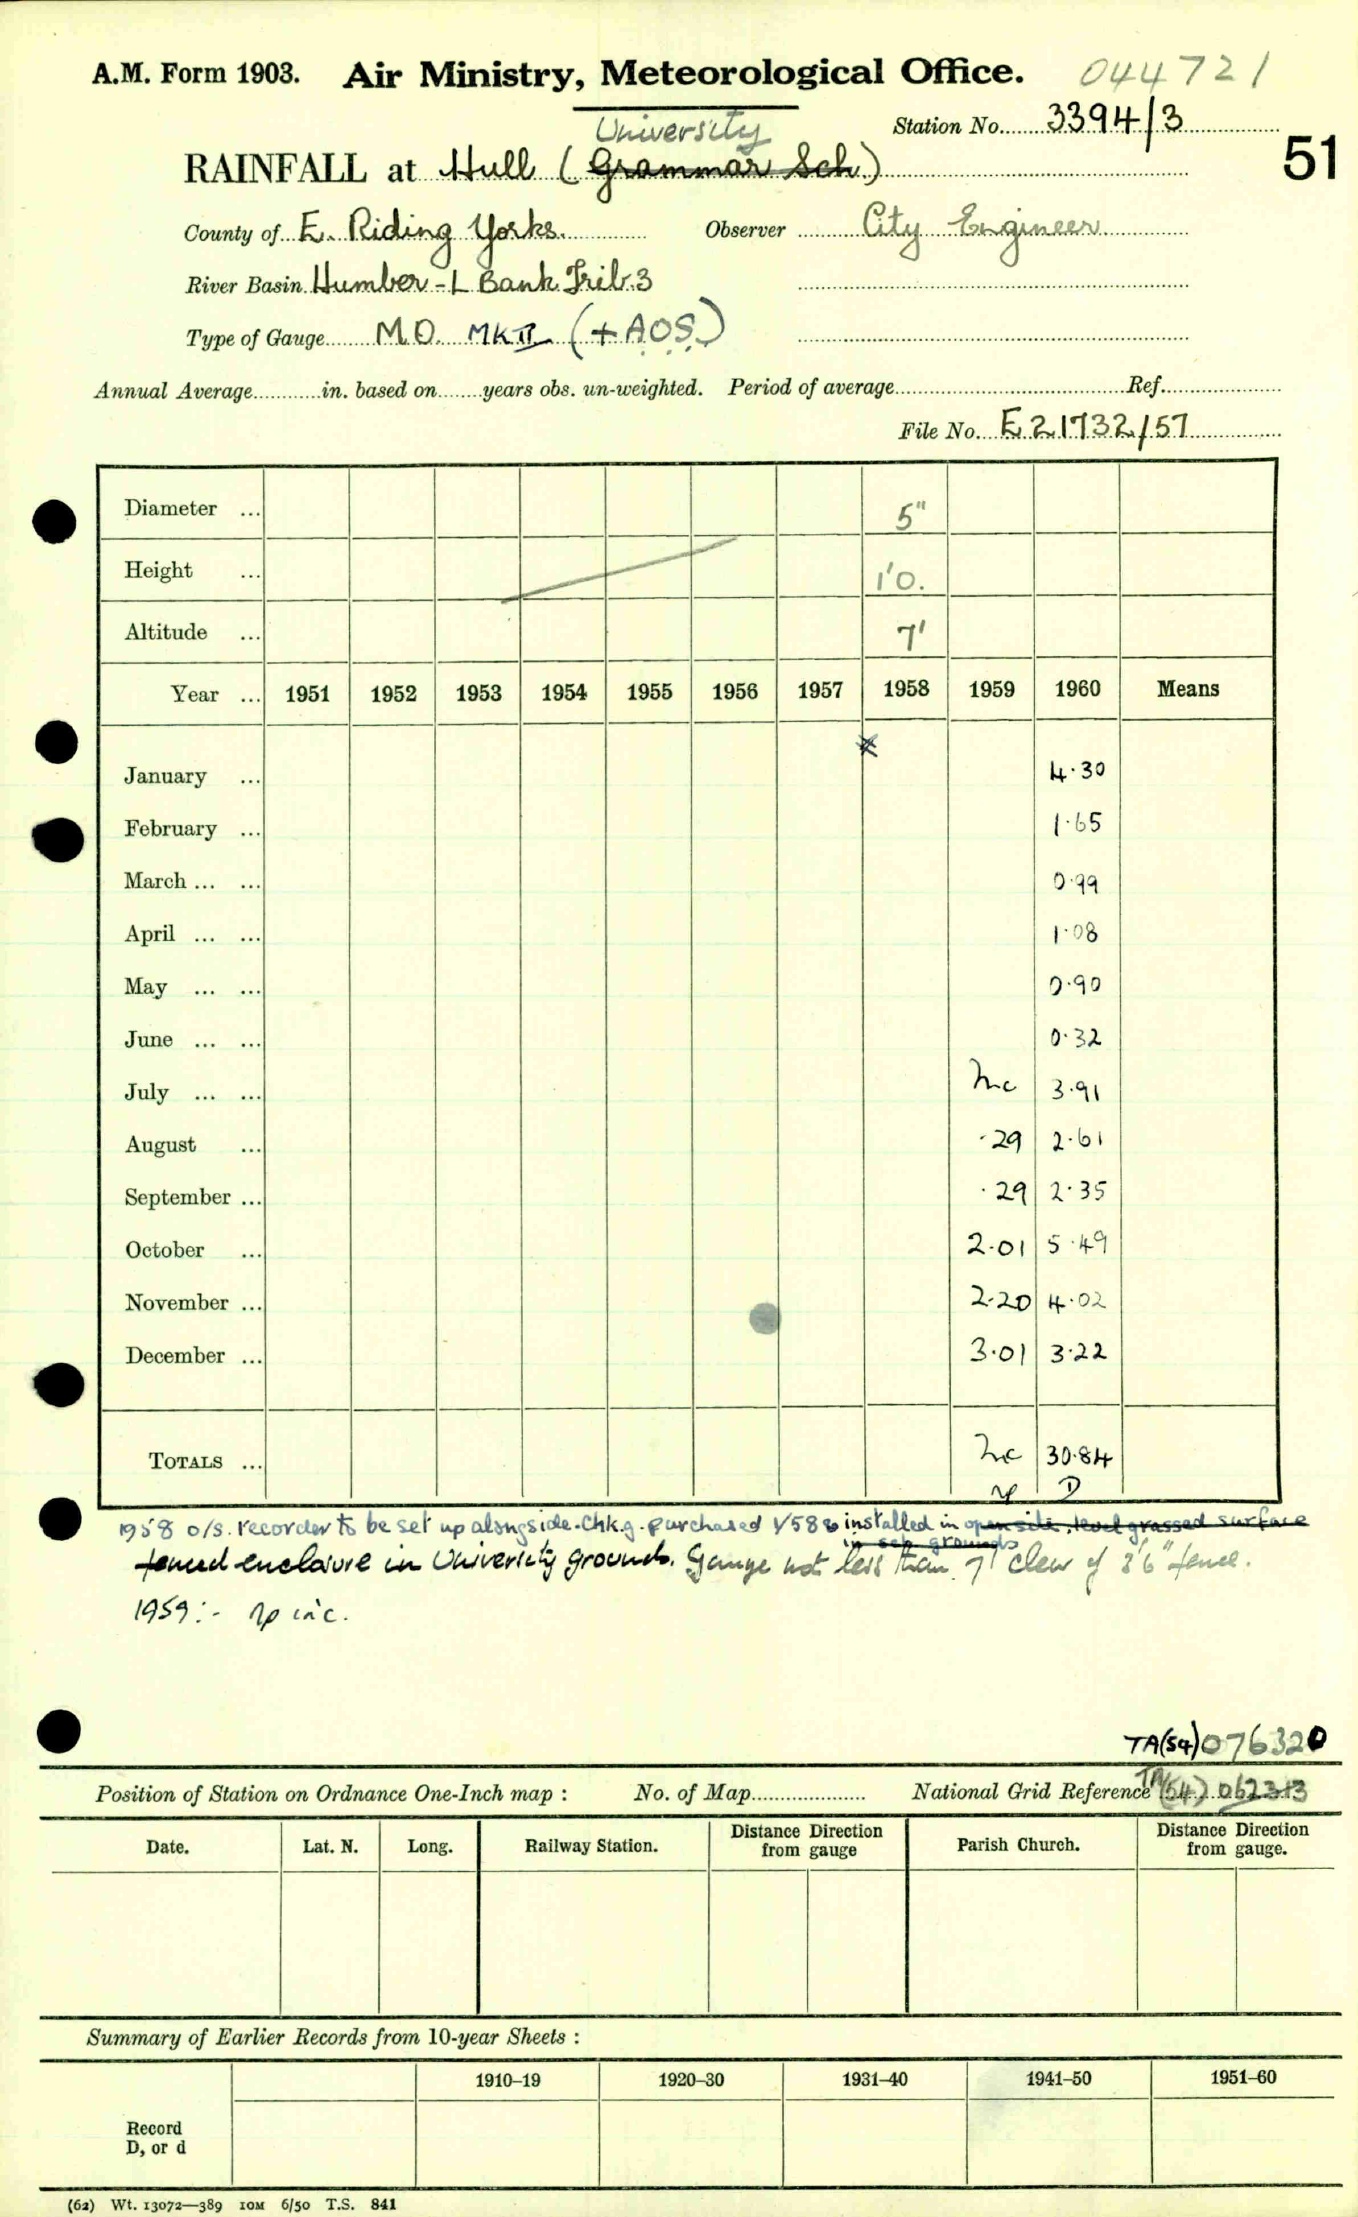 A.M. Form 1903. Air Ministry, Meteorological Office. 044721
Station No. 3394/3
51
University
RAINFALL at Hull (Grammar Sch.)
County of E. Riding Yorks. Observer City Engineer
River Basin Humber - L Bank Trib. 3
Type of Gauge M.O. MK II (+ A.O.S.)
Annual Average in. based on years obs. un-weighted. Period of average Ref.
File No. E21732/57
Diameter ... 5"
Height ... 1'0.
Altitude ... 7'
Year ... 1951 1952 1953 1954 1955 1956 1957 1958 1959 1960 Means
January ... 4.30
February ... 1.65
March ... ... 0.99
April ... ... 1.08
May ... ... 0.90
June ... ... 0.32
July ... ... Inc 3.91
August ... .29 2.61
September ... .29 2.35
October ... 2.01 5.49
November ... 2.20 4.02
December ... 3.01 3.22
TOTALS ... Inc 30.84
D
1958 o/s. recorder to be set up alongside. Chk.g. purchased 1/58 & installed in open site, level grassed surface
in sch grounds
fenced enclosure in University grounds. Gauge not less than 7' clear of 3'6" fence.
1959:- inc.
TA(54)076320
Position of Station on Ordnance One-Inch map : No. of Map National Grid Reference TA(54) 062313
Date. Lat. N. Long. Railway Station. Distance from Direction gauge Parish Church. Distance from Direction gauge.
Summary of Earlier Records from 10-year Sheets :
1910–19 1920–30 1931–40 1941–50 1951–60
Record
D, or d
(62) Wt. 13072—389 10M 6/50 T.S. 841